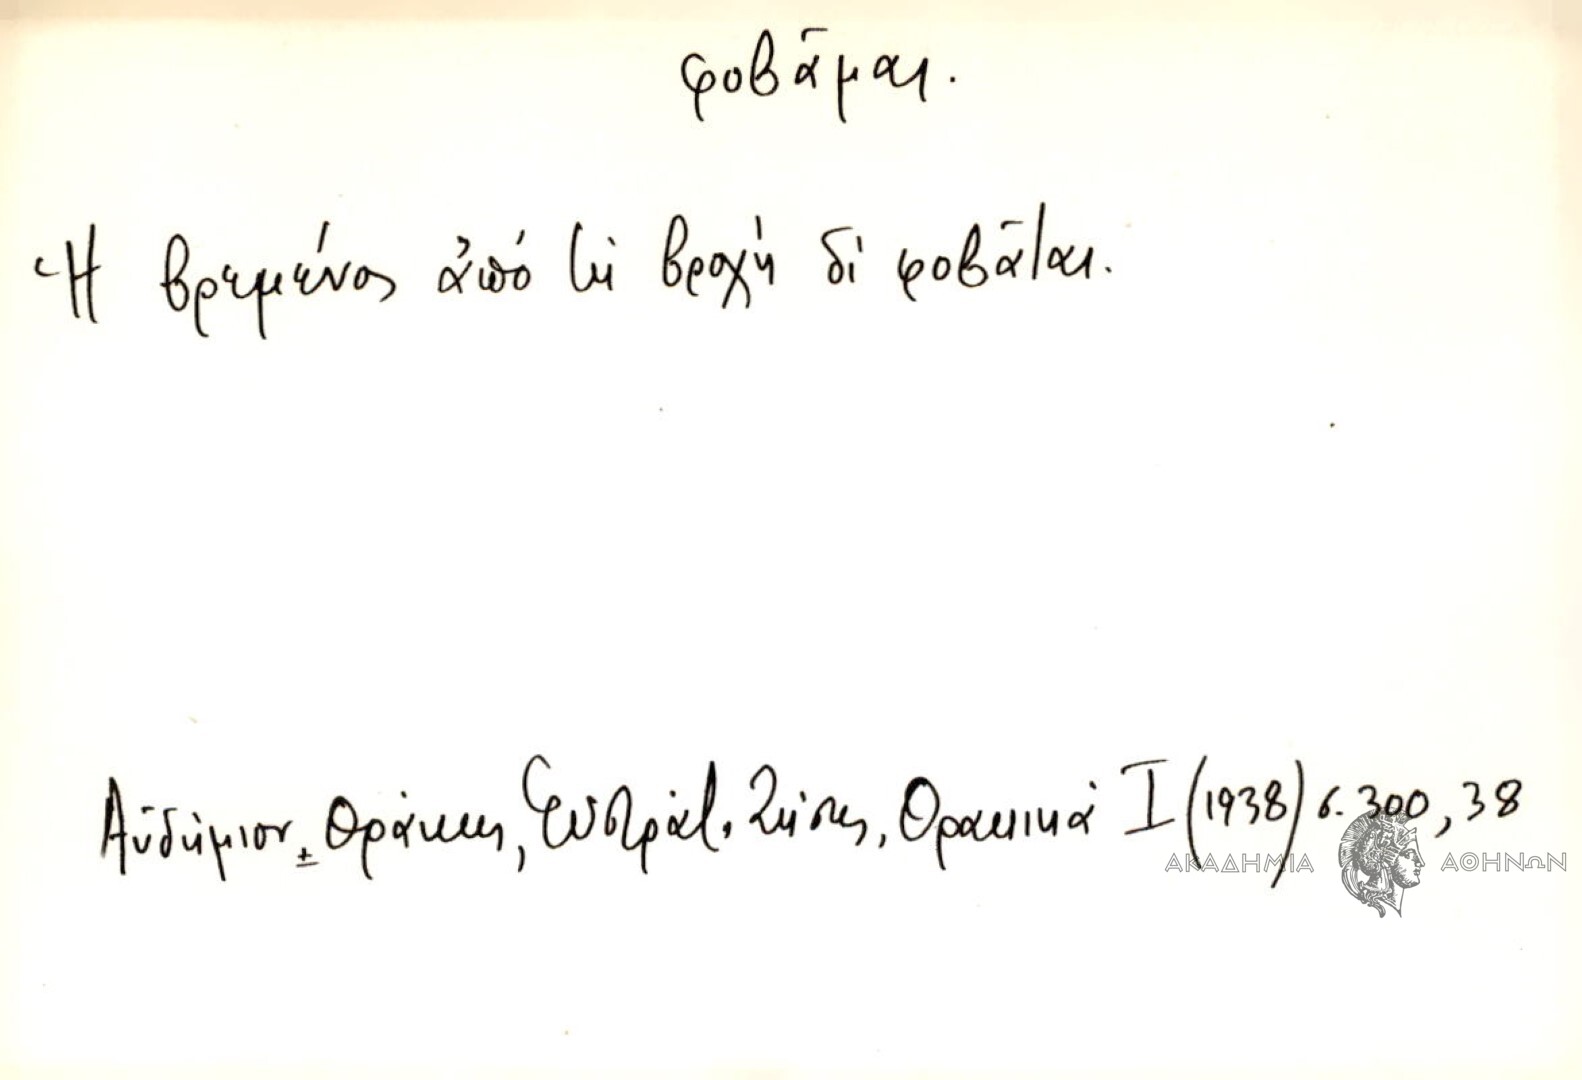 φοβᾶμαι.
Ἡ βρεμένος ἀπό τὴ βροχὴ δὶ φοβᾶται.
Αὐδήμιον Θράκης, Εὐστρατ. Ζήσης, Θρακικά I (1938) σ. 300, 38
ΑΚΑΔΗΜΙΑ ΑΘΗΝΩΝ